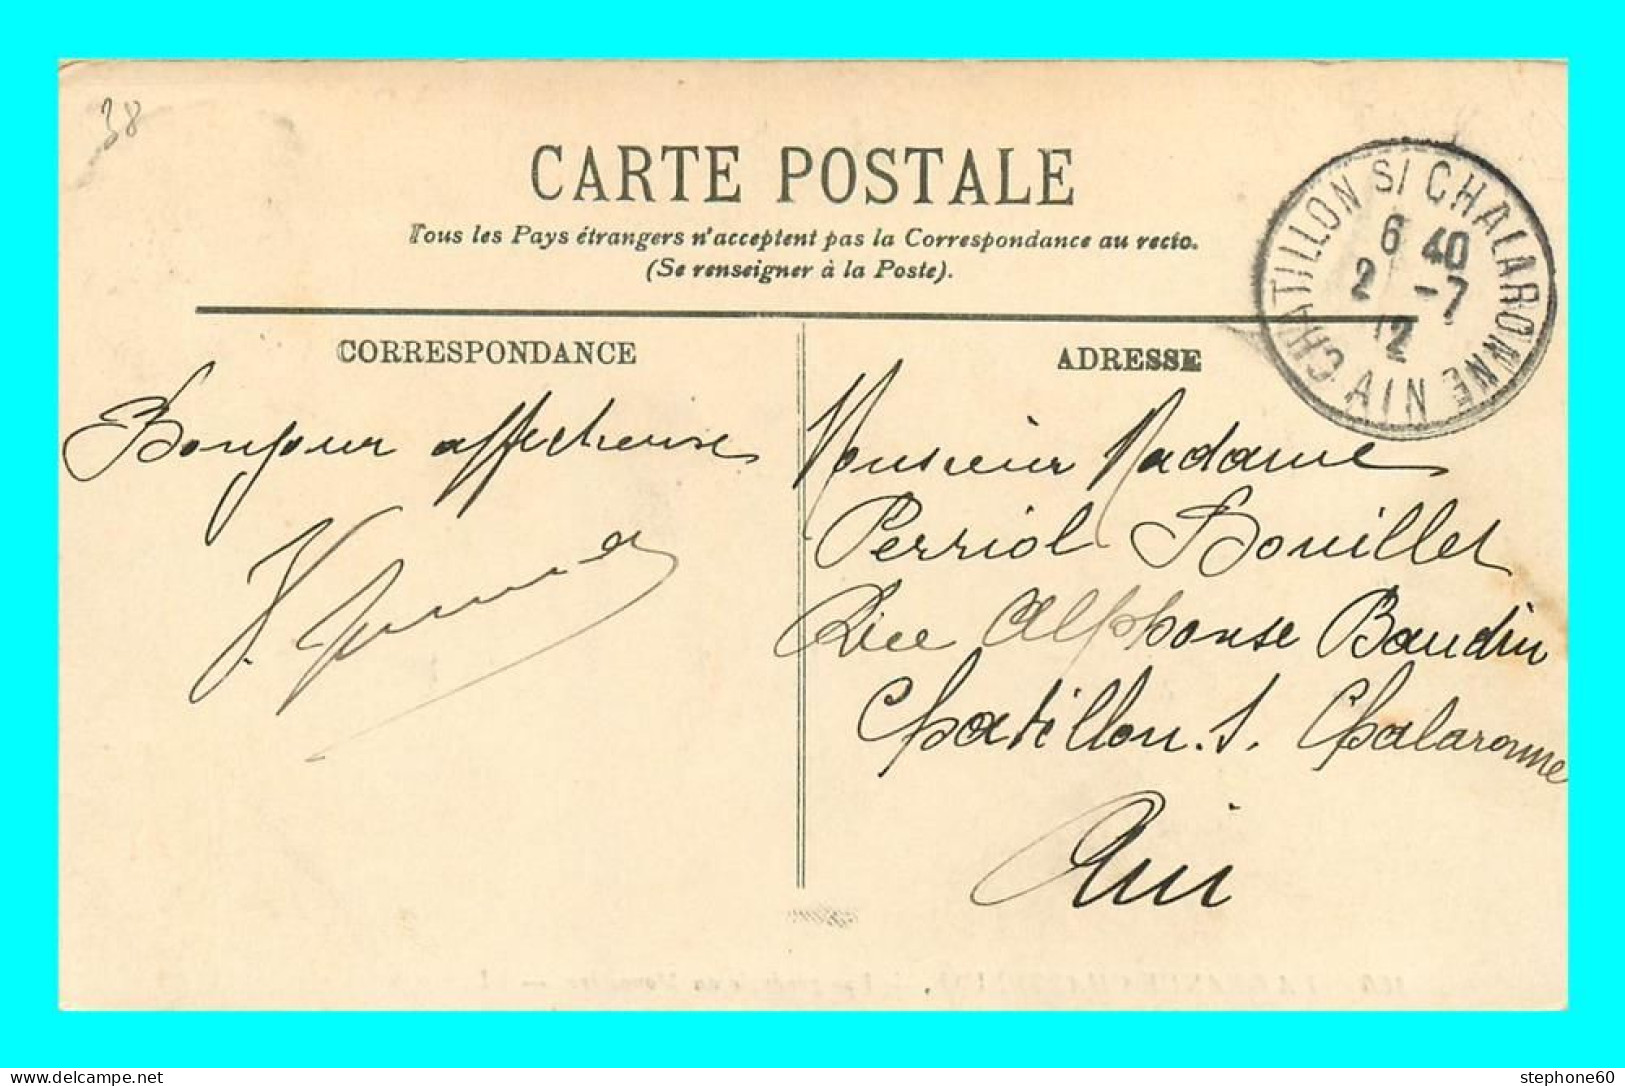 38
CARTE POSTALE
Tous les Pays étrangers n'acceptent pas la Correspondance au recto.
(Se renseigner à la Poste).
CHATILLON S/ CHALARONNE
AIN
6 40
2 -7
12
CORRESPONDANCE
ADRESSE
Bonjour affectueuse
Monsieur Madame
Perriol Bouillet
Rue Alphonse Baudin
Chatillon. s. Chalaronne
Ain
stephone60